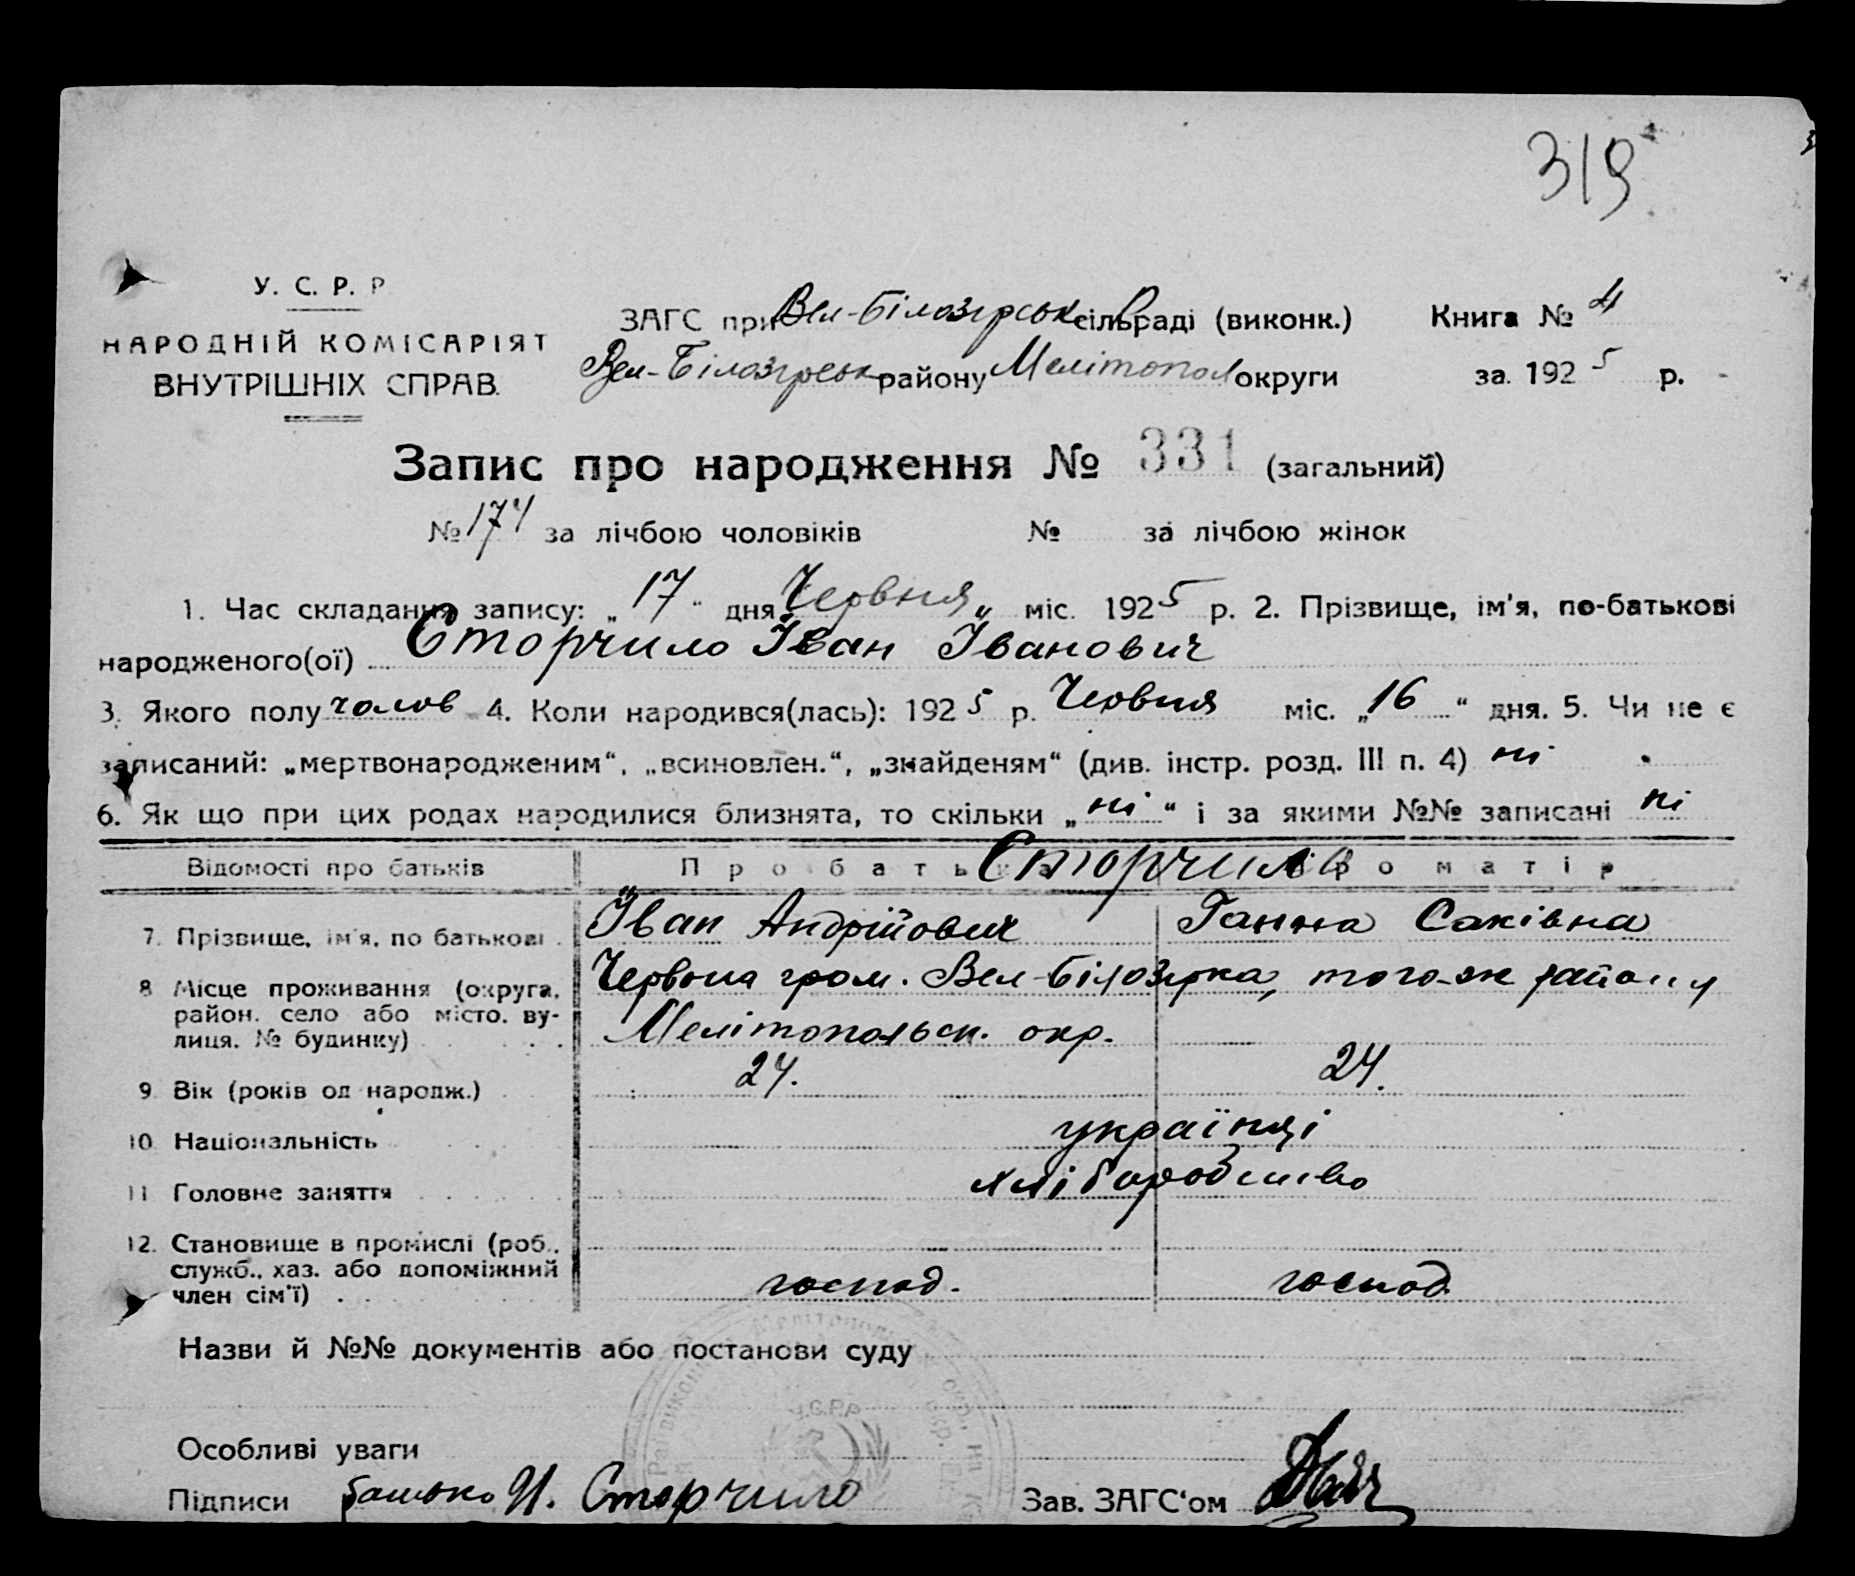 319
У. С. Р. Р
НАРОДНІЙ КОМІСАРІЯТ
ВНУТРІШНІХ СПРАВ.
ЗАГС при Вел-Білозірськ сільраді (виконк.) Книга № 4
Вел-Білозірськ району Мелітопол округи за 1925 р.
Запис про народження № 331 (загальний)
№ 174 за лічбою чоловіків № за лічбою жінок
1. Час складання запису: „17" дня Червня „ міс. 1925 р. 2. Прізвище, ім'я, по-батькові
народженого(ої) Сторчило Іван Іванович
3. Якого полу чолов 4. Коли народився(лась): 1925 р. Червня міс. „16" дня. 5. Чи не є
записаний: „мертвонародженим", „всиновлен.", „знайденям" (див. інстр. розд. III п. 4) ні
6. Як що при цих родах народилися близнята, то скільки „ні" і за якими №№ записані ні
Відомості про батьків Про батька Сторчило Про матір
7. Прізвище, ім'я, по батькові Іван Андрійович Ганна Саківна
8 Місце проживання (округа, Червона гром. Вел-Білозірка, того-ж району
район. село або місто. ву-
лиця. № будинку) Мелітопольськ. окр.
9 Вік (років од народж.) 24. 24.
10 Національність українці
11 Головне заняття хліборобство
12. Становище в промислі (роб.,
служб., хаз. або допоміжний
член сім'ї) господ. господ.
Назви й №№ документів або постанови суду
У.С.Р.Р
Особливі уваги
Підписи батько И. Сторчило Зав. ЗАГС'ом